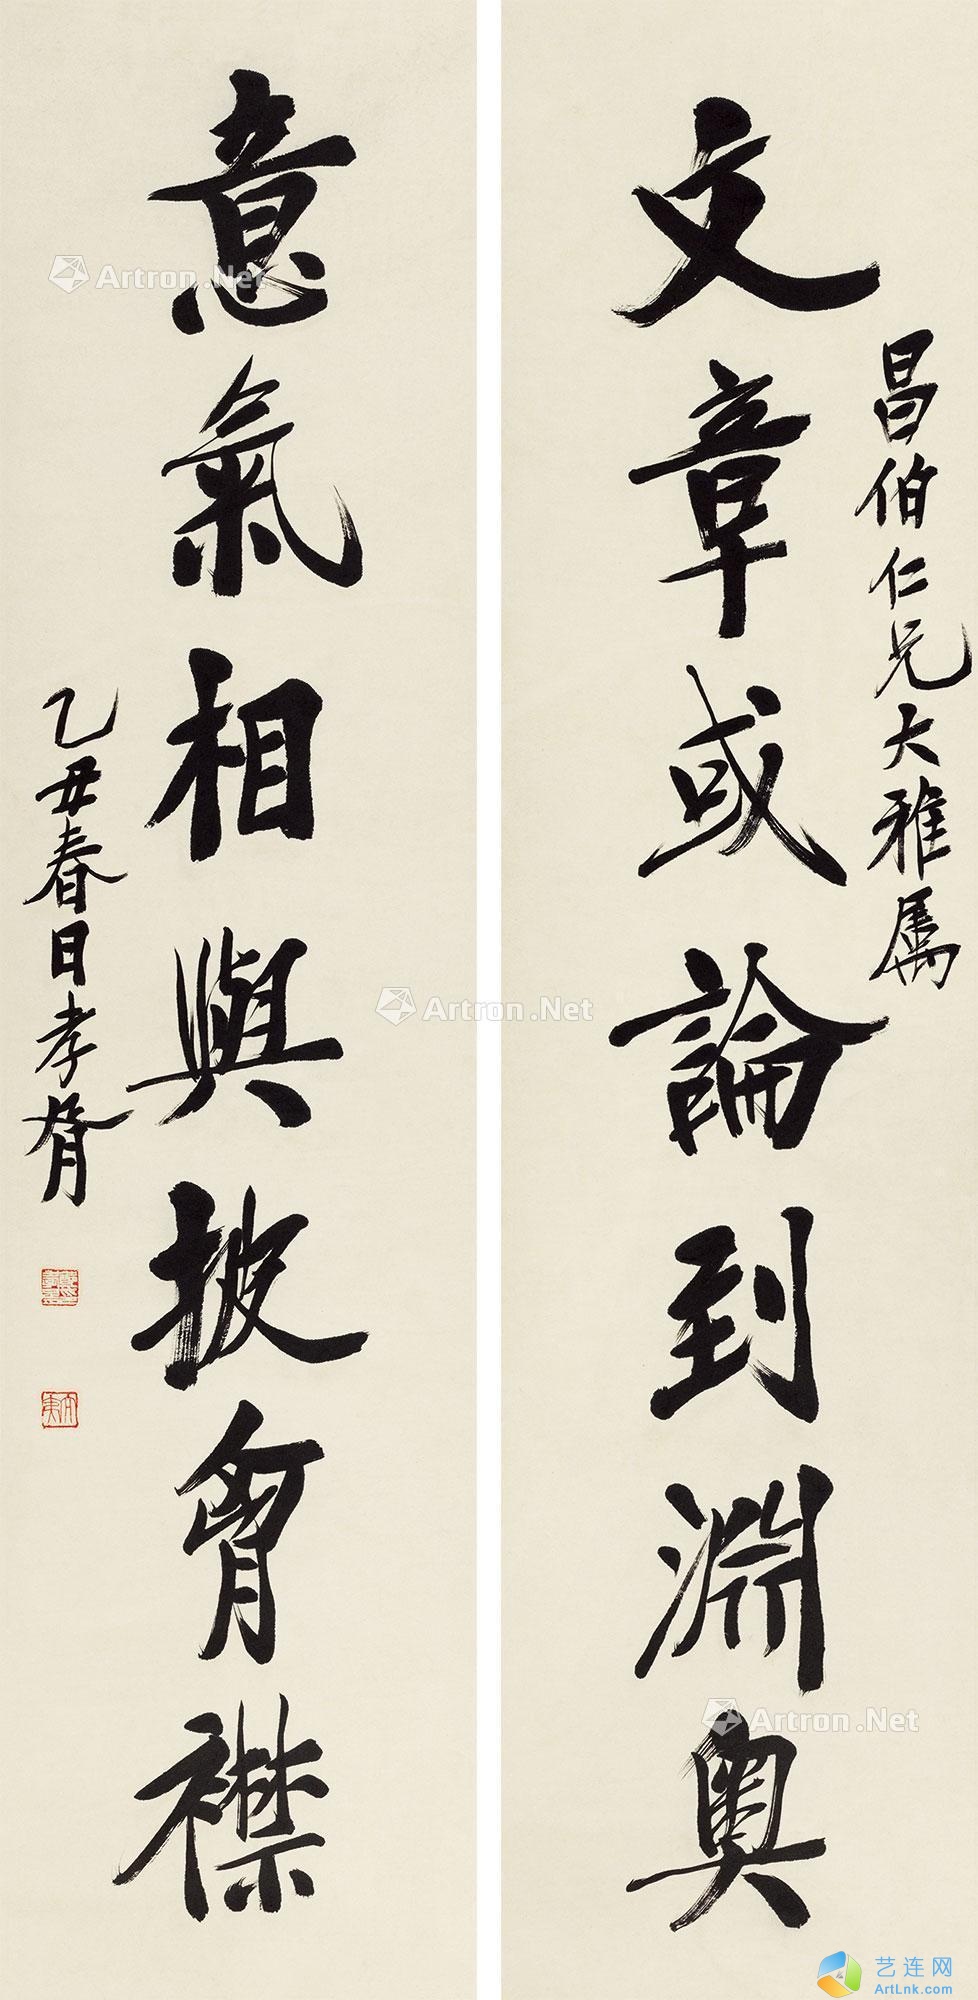 昌伯仁兄大雅属
文章或論到淵奧
意氣相與披胷襟
乙丑春日孝胥
Artron.Net
Artron.Net
Artron.Net
艺连网
ArtLnk.com